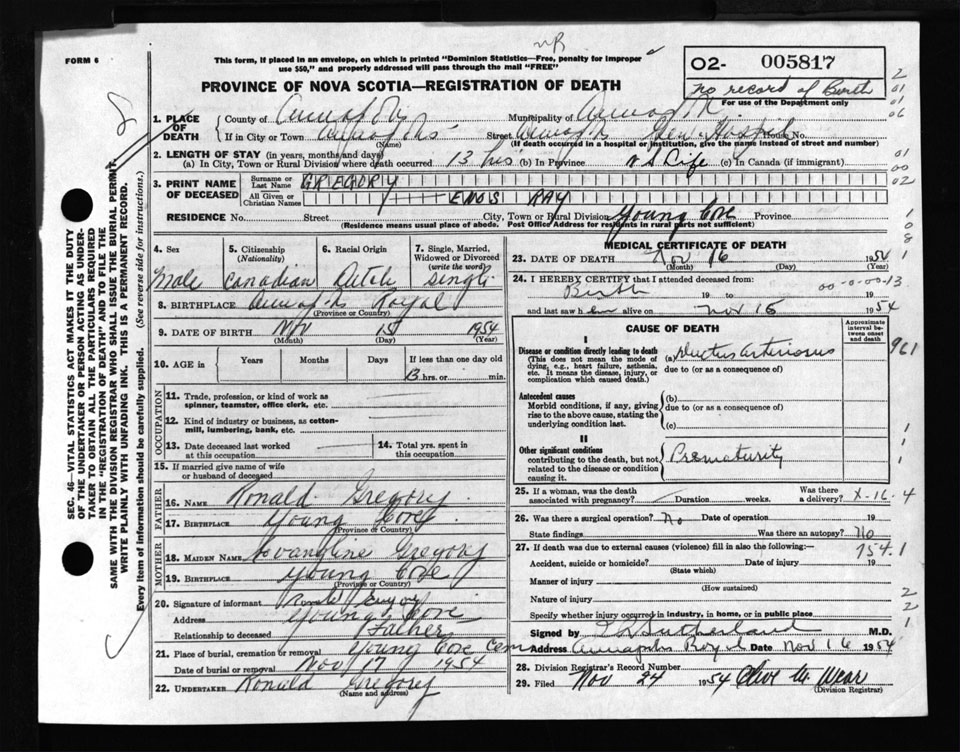 FORM 6
NR
This form, if placed in an envelope, on which is printed "Dominion Statistics—Free, penalty for improper
use $50," and properly addressed will pass through the mail "FREE"
PROVINCE OF NOVA SCOTIA—REGISTRATION OF DEATH
O2- 005817
no record of Birth
For use of the Department only
SEC. 46—VITAL STATISTICS ACT MAKES IT THE DUTY
OF THE UNDERTAKER OR PERSON ACTING AS UNDER-
TAKER TO OBTAIN ALL THE PARTICULARS REQUIRED
IN THE "REGISTRATION OF DEATH" AND TO FILE THE
SAME WITH THE DIVISION REGISTRAR WHO SHALL ISSUE THE BURIAL PERMIT.
WRITE PLAINLY WITH UNFADING INK. THIS IS A PERMANENT RECORD.
Every item of information should be carefully supplied. (See reverse side for instructions.)
1. PLACE OF DEATH
County of Annapolis Municipality of
If in City or Town Annapolis Street Annapolis Gen Hospital House No.
(Name) (If death occurred in a hospital or institution, give the name instead of street and number)
2. LENGTH OF STAY (in years, months and days)
(a) In City, Town or Rural Division where death occurred 13 hrs (b) In Province Life (c) In Canada (if immigrant)
3. PRINT NAME OF DECEASED
Surname or Last Name GREGORY
All Given or Christian Names ENOS RAY
RESIDENCE No. Street City, Town or Rural Division Young Cove Province
(Residence means usual place of abode. Post Office Address for residents in rural parts not sufficient)
4. Sex Male
5. Citizenship (Nationality) Canadian
6. Racial Origin Dutch
7. Single, Married, Widowed or Divorced (write the word) Single
8. BIRTHPLACE Annapolis Royal
(Province or Country)
9. DATE OF BIRTH Nov 15 1954
(Month) (Day) (Year)
10. AGE in Years Months Days If less than one day old
13 hrs. or min.
OCCUPATION
11. Trade, profession, or kind of work as
spinner, teamster, office clerk, etc.
12. Kind of industry or business, as cotton-
mill, lumbering, bank, etc.
13. Date deceased last worked
at this occupation
14. Total yrs. spent in
this occupation
15. If married give name of wife
or husband of deceased
FATHER
16. NAME Ronald Gregory
17. BIRTHPLACE Young Cove
(Province or Country)
MOTHER
18. MAIDEN NAME Evangline Gregory
19. BIRTHPLACE Young Cove
(Province or Country)
20. Signature of informant Ronald Gregory
Address Young Cove
Relationship to deceased Father
21. Place of burial, cremation or removal Young Cove Cem
Date of burial or removal Nov 17 1954
22. UNDERTAKER Ronald Gregory
(Name and address)
MEDICAL CERTIFICATE OF DEATH
23. DATE OF DEATH Nov 16 1954
(Month) (Day)
24. I HEREBY CERTIFY that I attended deceased from:
Birth 19 to 19
00-0-00-13
and last saw h alive on Nov 15 1954
CAUSE OF DEATH
Approximate interval between onset and death
I
Disease or condition directly leading to death
(This does not mean the mode of
dying, e.g., heart failure, asthenia,
etc. It means the disease, injury, or
complication which caused death.)
(a) Ductus arteriosus
due to (or as a consequence of)
Antecedent causes
Morbid conditions, if any, giving
rise to the above cause, stating the
underlying condition last.
(b)
due to (or as a consequence of)
(c)
II
Other significant conditions
contributing to the death, but not
related to the disease or condition
causing it.
Prematurity
25. If a woman, was the death
associated with pregnancy? Duration weeks. Was there
a delivery? X-16-4
26. Was there a surgical operation? No Date of operation 19
State findings Was there an autopsy? No
27. If death was due to external causes (violence) fill in also the following:— 754.1
Accident, suicide or homicide? Date of injury 19
(State which)
Manner of injury
(How sustained)
Nature of injury
Specify whether injury occurred in industry, in home, or in public place
Signed by Sutherland M.D.
Address Annapolis Royal Date Nov 16 1954
28. Division Registrar's Record Number
29. Filed Nov 24 1954 Clive M. Wear
(Division Registrar)